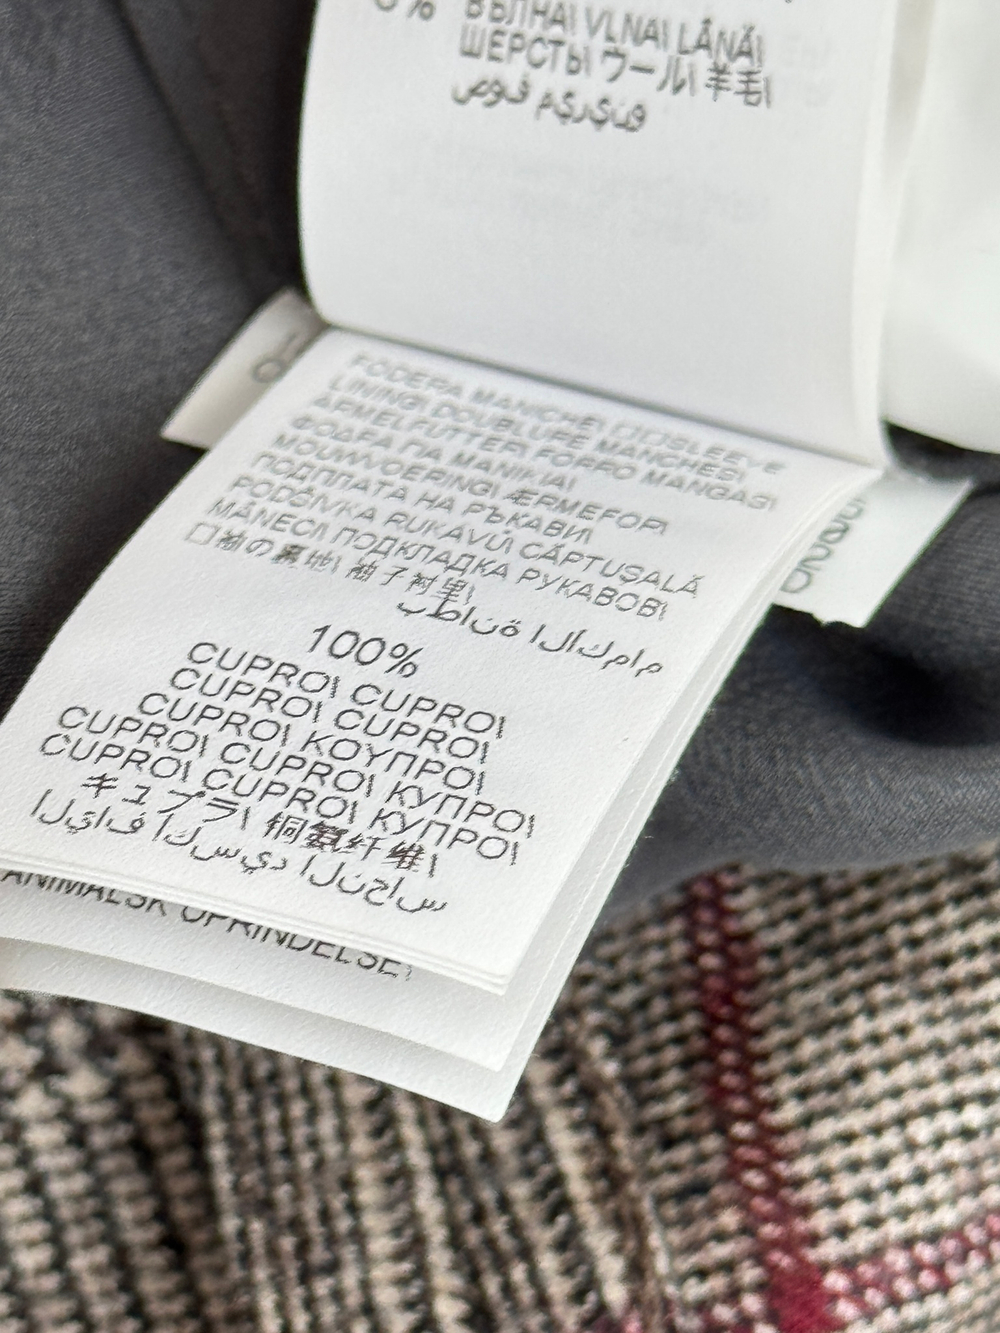 ВЪЛНА\ VLNA\ LÂNĂ\
ШЕРСТЬ\ ウール\ 羊毛\
FODERA MANICHE\ 口口SLEEVE
LINING\ DOUBLURE MANCHES\
ÄRMELFUTTER\ FORRO MANGAS\
ΦΟΔΡΑ ΓΙΑ ΜΑΝΙΚΙΑ\
MOUWVOERING\ ÆRMEFOR\
ПОДПЛАТА НА РЪКАВИ\
PODŠIVKA RUKÁVŮ\ CĂPTUŞALĂ
MÂNECI\ ПОДКЛАДКА РУКАВОВ\
口袖の裏地\ 袖子衬里\
بطانة الأكمام
100%
CUPRO\ CUPRO\
CUPRO\ CUPRO\
CUPRO\ ΚΟΥΠΡΟ\
CUPRO\ CUPRO\ КУПРО\
CUPRO\ CUPRO\ КУПРО\
キュプラ\ 铜氨纤维\
ANIMALSK OPRINDELSE\